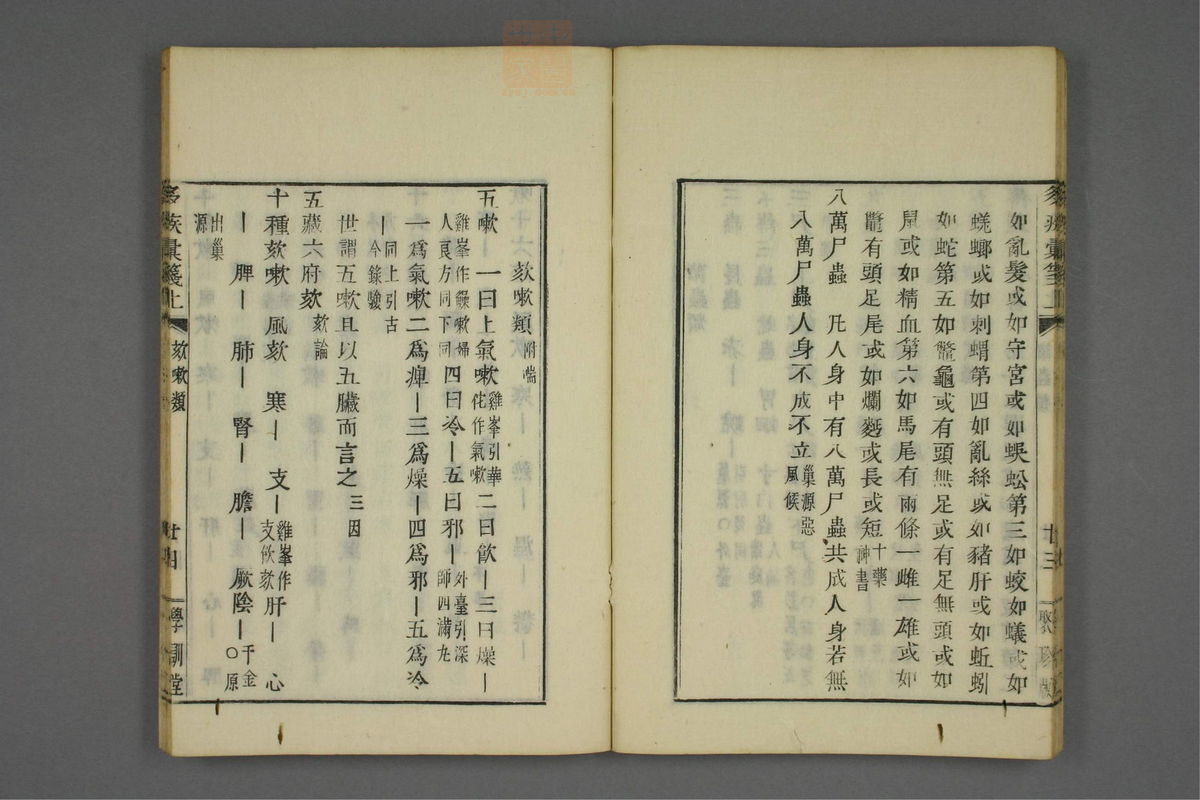 如亂髮或如守宮或如蜈蚣第三如蛟如蟻或如
蜣螂或如刺蝟第四如亂絲或如豬肝或如蚯蚓
如蛇第五如鼈龜或有頭無足或有足無頭或如
鼠或如精血第六如馬尾有兩條一雌一雄或如
鼈有頭足尾或如爛麫或長或短十藥神書
八萬尸蟲 凡人身中有八萬尸蟲共成人身若無
八萬尸蟲人身不成不立巢源惡風候
廿三
欬嗽類附喘
五嗽 一曰上氣嗽雞峯引華佗作氣嗽二曰飮ー三曰燥ー
雞峯作䐹嗽婦人良方同下同四曰冷ー五曰邪ー外臺引深師四滿丸
一爲氣嗽二爲痺ー三爲燥ー四爲邪ー五爲冷
ー同上引古今錄驗
世謂五嗽且以五臟而言之三因
五藏六府欬欬論
十種欬嗽 風欬 寒ー 支ー雞峯作支飮欬肝ー 心
ー 脾ー 肺ー 腎ー 膽ー 厥陰ー千金〇原
出巢源
欬嗽類
廿四
學訓堂